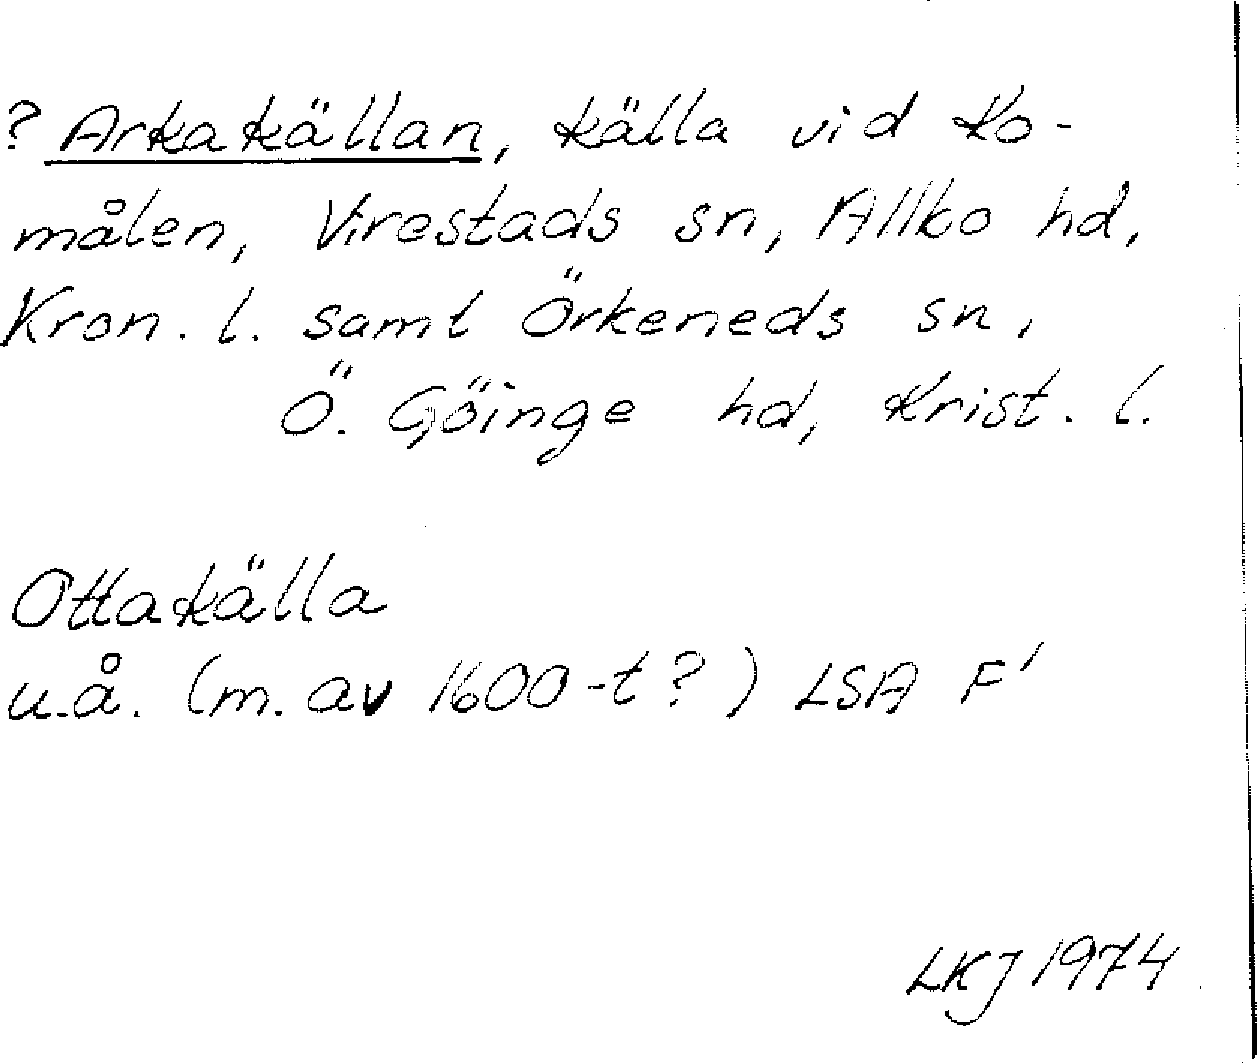 ? Arkakällan, källa vid Ko-
målen, Virestads sn, Allbo hd,
Kron. l. samt Örkeneds sn,
Ö. Göinge hd, Krist. l.
Ottakälla
u.å. (m. av 1600-t?) LSA F'
LKJ 1974